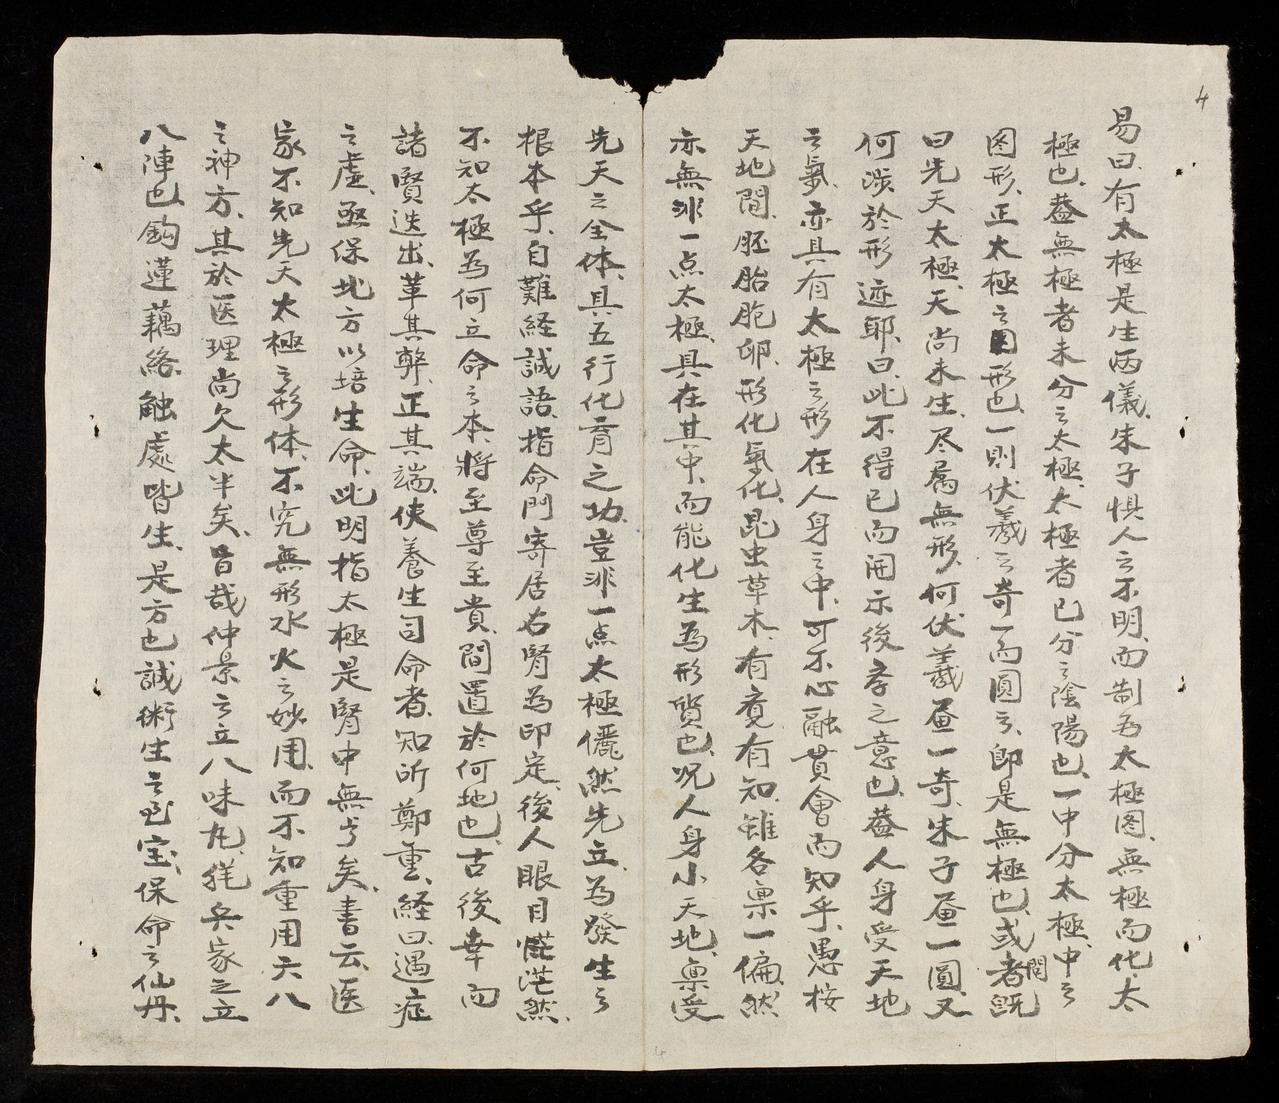 4
易曰、有太極是生两儀、朱子惧人之不明、而制为太極图、無極而化、太
極也、蓋無極者未分之太極、太極者已分之陰陽也、一中分太極、中之
图形、正太極之图形也、一則伏羲之奇一而圓之、即是無極也、或問者既
曰先天太極、天尚未生、尽属無形、何伏羲畫一奇、朱子畫一圓、又
何涉於形迹耶、曰、此不得已而開示後孝之意也、蓋人身受天地
之氣、亦具有太極之形在人身之中、可不心融貫會而知乎、愚桉
天地間、胚胎胞卵、形化氣化、昆虫草木、有竟有知、雖各禀一偏、然
亦無非一点太極、具在其中、而能化生為形質也、况人身小天地、禀受
先天之全体、具五行化育之功、豈非一点太極儼然先立、為發生之
根本乎、自難経誠語、指命門寄居右腎為印定、後人眼目茫茫然、
不知太極為何立命之本、將至尊至貴、間置於何地也、古後幸而
諸賢迭出、革其弊、正其端、使養生司命者、知所鄭重、経曰、遇症
之虚、亟保北方以培生命、此明指太極是腎中無亏矣、書云、医
家不知先天太極之形体、不究無形水火之妙用、而不知重用六八
之神方、其於医理尚欠太半矣、旨哉仲景之立八味丸、㹨兵家之立
八陣也、鈎蓮藕絡、触處皆生、是方也、誠術生之至宝、保命之仙丹、
4